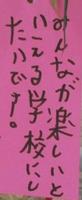 みんなが楽しいと
いえる学校にし
たいです!